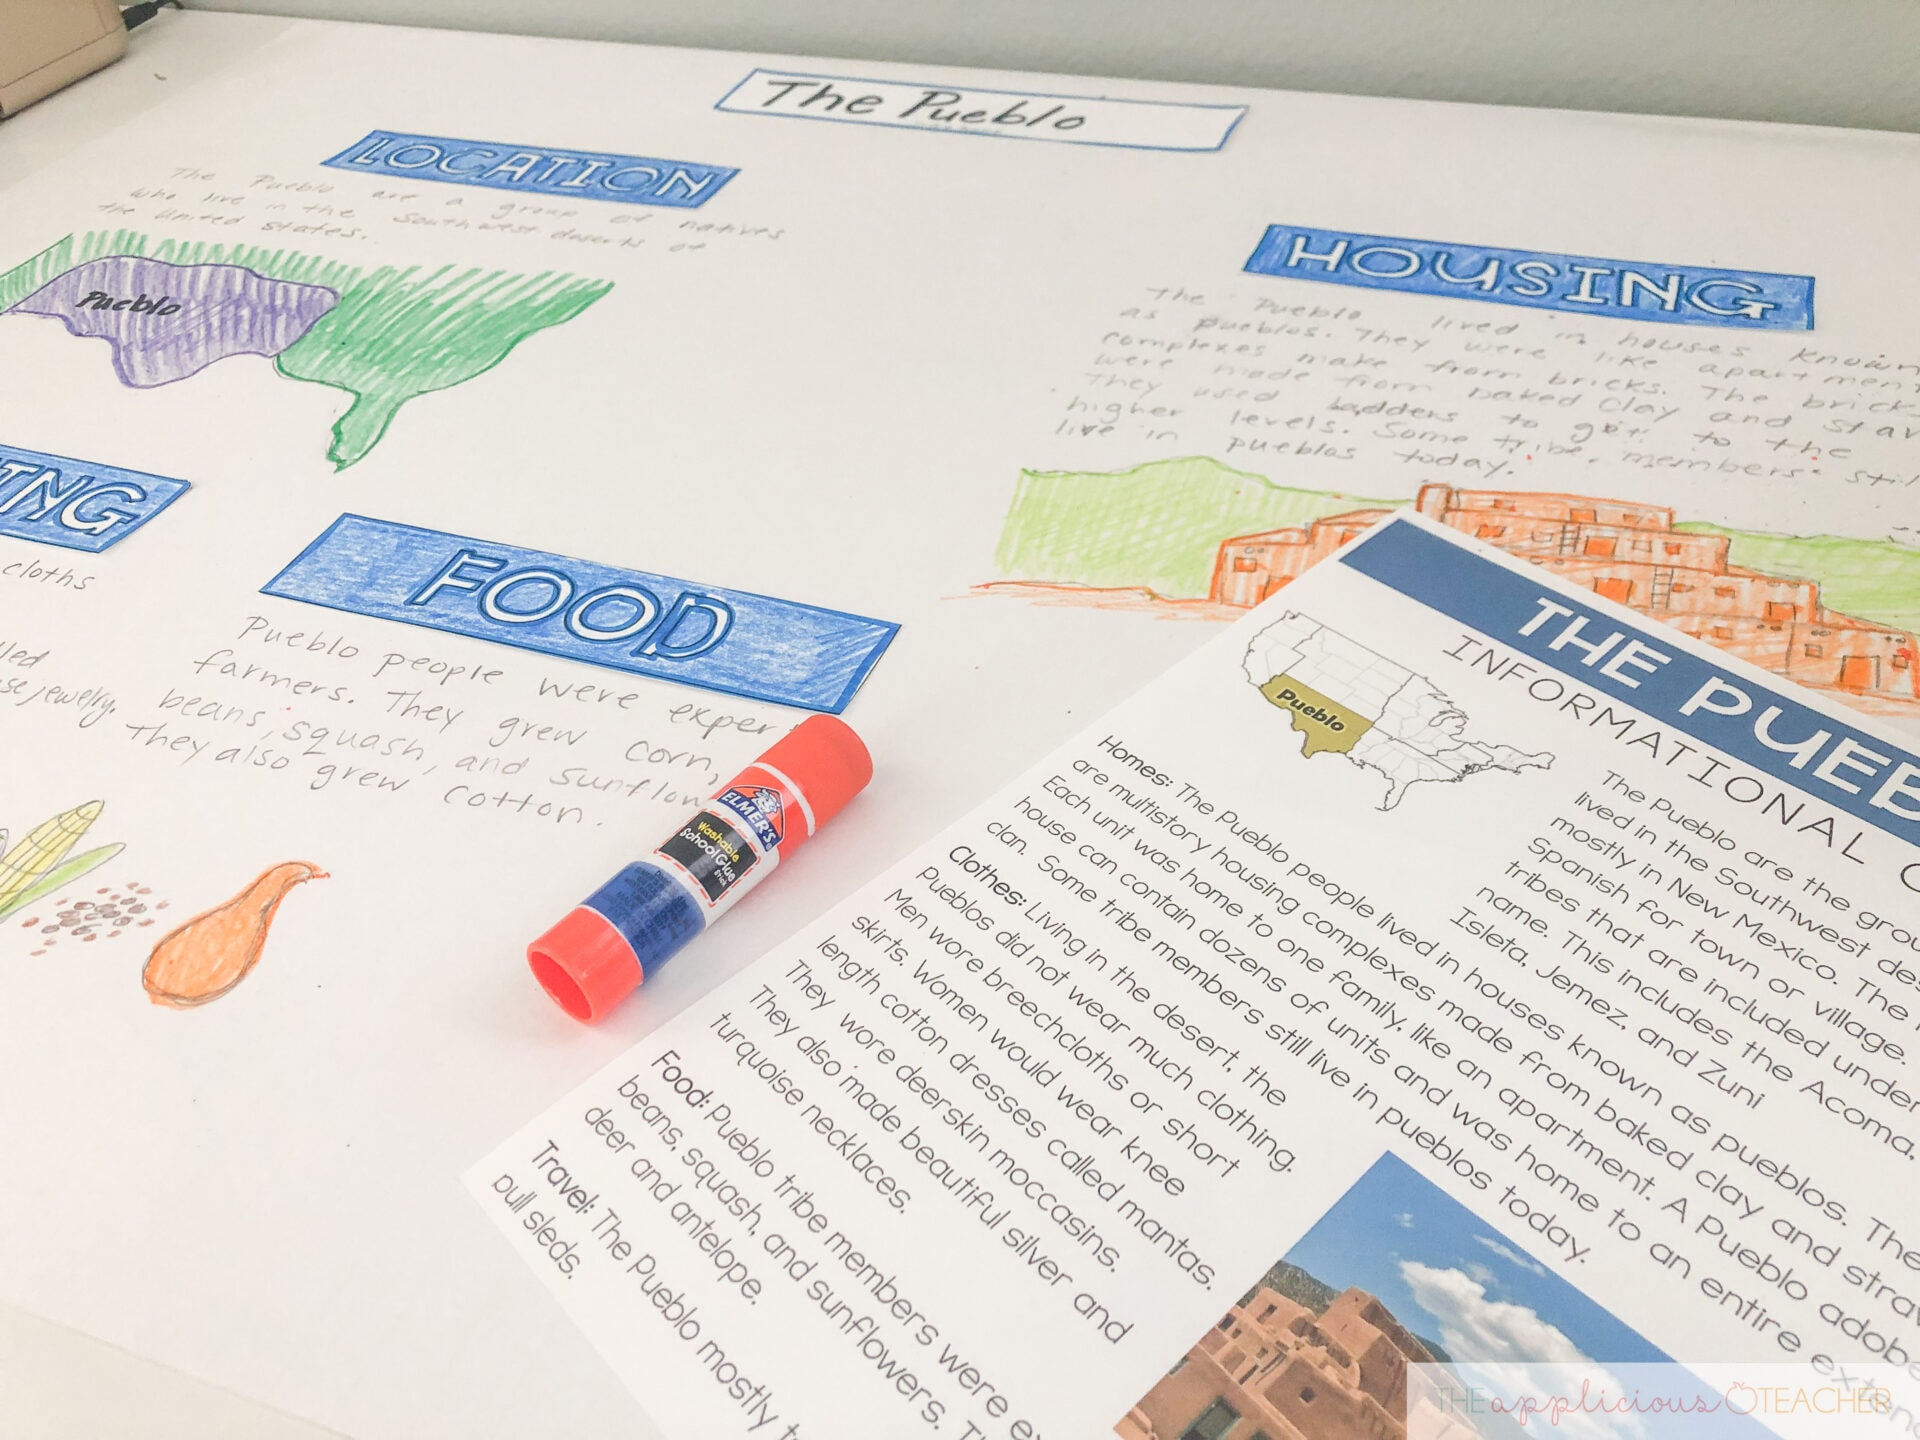 The Pueblo
LOCATION
The Pueblo are a group of natives
who live in the Southwest deserts of
the United States.
Pueblo
HOUSING
The Pueblo lived in houses known
as pueblos. They were like apartment
complexes make from bricks. The bricks
were made from baked clay and straw
They used ladders to get to the
higher levels. Some tribe members still
live in pueblos today.
ING
cloths
lled
se jewelry.
FOOD
Pueblo people were exper
farmers. They grew corn,
beans, squash, and sunflow
They also grew cotton.
ELMER'S
Washable
School Glue
Stick
THE PUEB
INFORMATIONAL
Pueblo
The Pueblo are the grou
lived in the Southwest des
mostly in New Mexico. The
Spanish for town or village.
tribes that are included under
name. This includes the Acoma,
Isleta, Jemez, and Zuni
Homes: The Pueblo people lived in houses known as pueblos. The
are multistory housing complexes made from baked clay and straw
Each unit was home to one family, like an apartment. A Pueblo adobe
house can contain dozens of units and was home to an entire exten
clan. Some tribe members still live in pueblos today.
Clothes: Living in the desert, the
Pueblos did not wear much clothing.
Men wore breechcloths or short
skirts. Women would wear knee
length cotton dresses called mantas.
They wore deerskin moccasins.
They also made beautiful silver and
turquoise necklaces.
Food: Pueblo tribe members were ex
beans, squash, and sunflowers. Th
deer and antelope.
Travel: The Pueblo mostly t
pull sleds.
THE applicious TEACHER